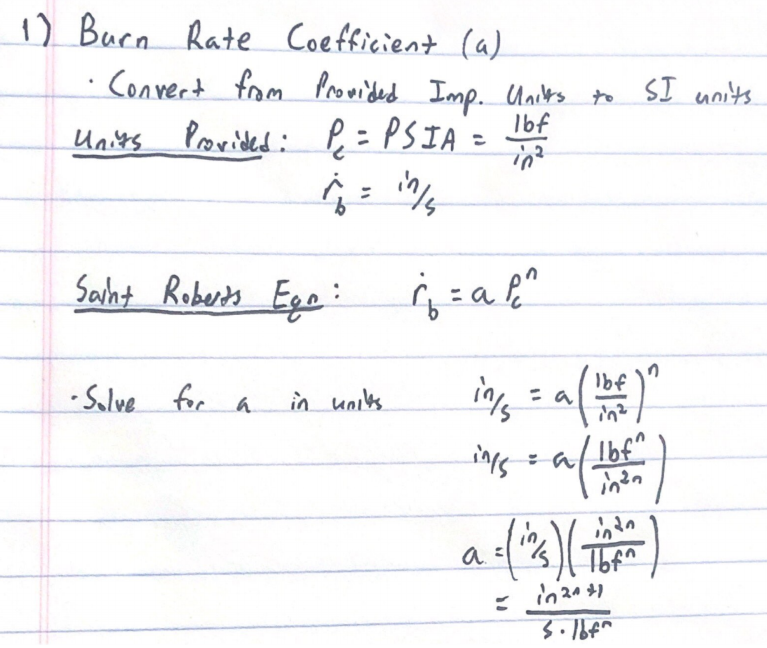 1) Burn Rate Coefficient (a)
· Convert from Provided Imp. Units to SI units
Units Provided: P_c = PSIA = lbf/in²
ṙ_b = in/s
Saint Roberts Eqn: ṙ_b = a P_c^n
· Solve for a in units in/s = a (lbf/in²)^n
in/s = a (lbf^n/in^2n)
a = (in/s) (in^2n/lbf^n)
= in^2n+1/s·lbf^n